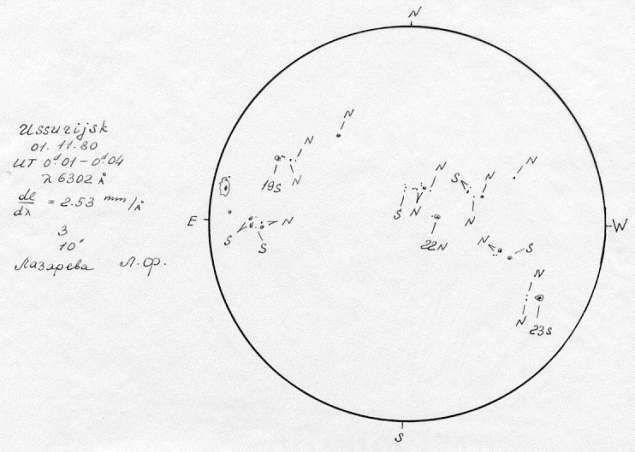 Ussurijsk
01. 11. 80
UT 0ᵈ.01 – 0ᵈ.04
λ 6302 Å
dl/dλ = 2.53 mm/Å
3
10"
Лазарева Л.Ф.
N
N
N
N
19S
E
S
S
N
S
N
N
S
N
N
N
22N
N
S
W
N
N
23S
S